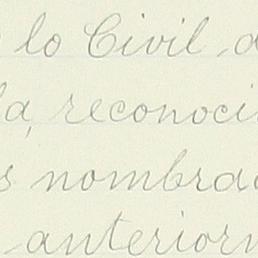 lo Civil,
la, reconoci
s nombra
anterior